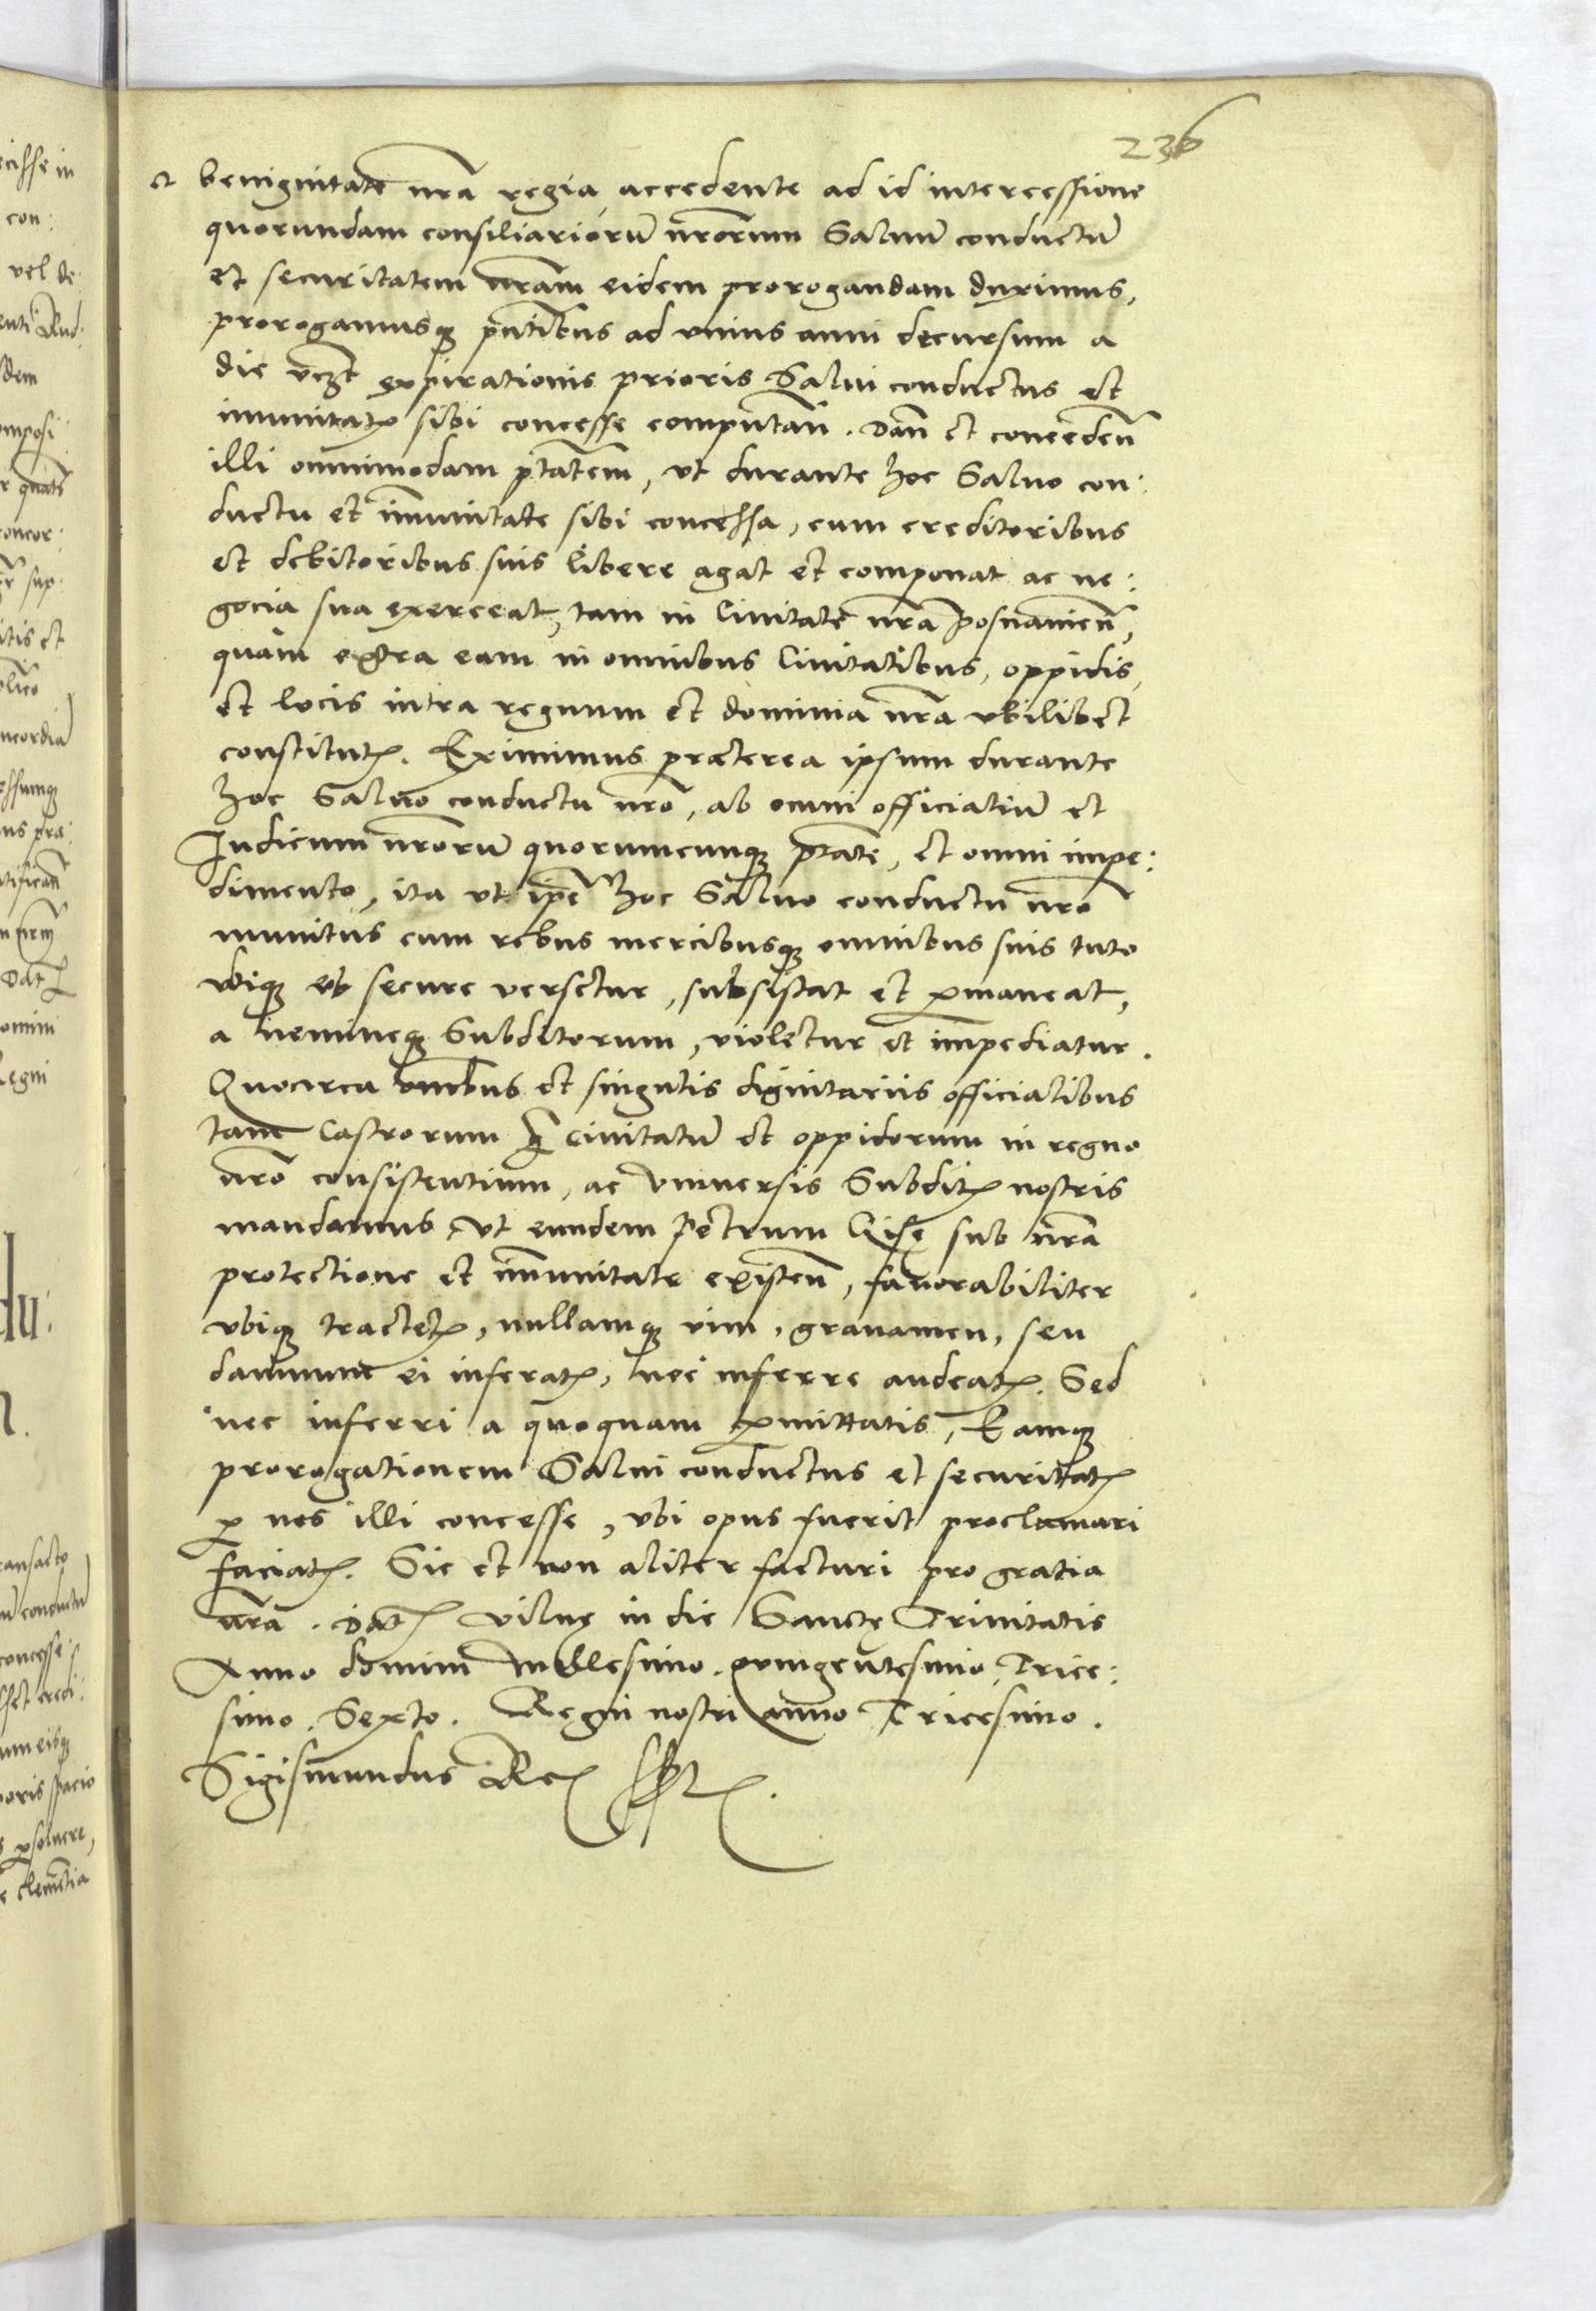 236
et benignitate nrā regia, accedente ad id intercessione
quorundam consiliariorū nrōrum Saluū conductū
et securitatem nrām eidem prorogandam duximus,
prorogamusq pntībus ad vnius anni decursum a
die vczt expirationis prioris Salui conductus et
imunitatꝭ sibi concesse computañ. Dañ et concedeñ
illi omnimodam ptātem, vt durante hoc Saluo con:
ductu et im̄unitate sibi concessa, cum creditoribus
et debitoribus suis libere agat et componat ac ne:
gocia sua exerceat, tam in Ciuitate nrā Posnanieñ,
quam extra eam in omnibus Ciuitatibus, oppidis,
et locis intra regnum et dominia nrā vbilibet
constitutꝭ. Eximimus præterea ipsum durante
hoc Saluo conductu nrō, ab omni officialiū et
Iudicum nrōrū quorumcunq ptāte, et omni impe:
dimento, ita vt ipē hoc Saluo conductu nrō
munitus cum rebus mercibusq omnibus suis tuto
vbiq et secure versetur, subsistat et ꝑmaneat,
a nemineq Subditorum, violetur et impediatur.
Quocirca omībus et singulis dignitariis officialibus
tam Castrorum q̄ Ciuitatū et oppidorum in regno
nrō consistentium, ac vniuersis Subditꝭ nostris
mandamus, vt eundem Petrum sub nrā
protectione et im̄unitate existeñ, fauorabiliter
vbiq tractetꝭ, nullamq vim, grauamen, seu
damnum ei inferatꝭ, nec inferre audeatꝭ. Sed
nec inferri a quoquam ꝑmittatis, Eamq
prorogationem Salui conductus et securitatꝭ
ꝑ nos illi concesse, vbi opus fuerit proclamari
faciatꝭ. Sic et non aliter facturi pro gratia
nrā. Datꝭ Vilnę in die Sanctę Trinitatis
Anno domini Millesimo quingentesimo Trice:
simo Sexto. Regni nostri anno Tricesimo.
Sigismundus Rex sst.